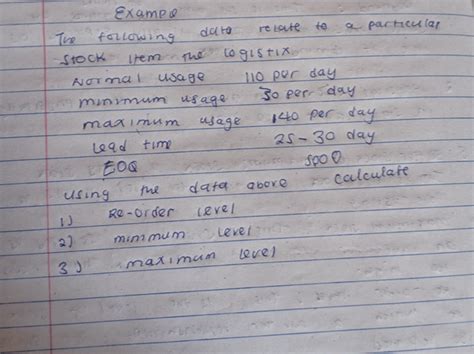 Example
The following data relate to a particular
stock item the Logistix.
Normal usage 110 per day
minimum usage 30 per day
maximum usage 140 per day
Lead time 25-30 day
EOQ 5000
using the data above calculate
1) Re-order level
2) minimum level
3) maximum level